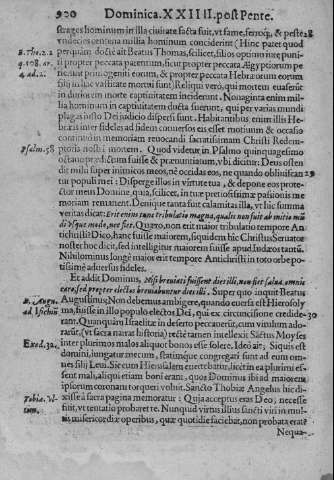 920 Dominica. XXIIII. post Pente.
strages hominum in illa ciuitate facta fuit, vt fame, ferroq; & peste 28
vndecies centena millia hominum conciderint (Hinc patet quod
D. Tho. 2. 2 perquàm doctè ait Beatus Thomas, scilicet, filios optimo iure puni-
q. 108. ar. ri propter peccata parentum, sicut propter peccata Ægyptiorum pe-
4. ad. 2. sunt primogeniti eorum, & propter peccata Hebræorum eorum
filij in hac vastitate mortui sunt. Reliqui verò, qui mortem euaserũt
in duriorem morte captiuitatem inciderunt. Nonaginta enim mil-
lia hominum in captiuitatem ducta fuerunt, qui per varias mundi
plagas iusto Dei iudicio dispersi sunt. Habitantibus enim illis He-
bræis inter fideles ad fidem conuersos eis esset motiuum & occasio
continua in memoriam reuocandi sacratissimam Christi Redem-
Psalm. 58 ptoris nostri mortem. Quod videtur in Psalmo quinquagesimo
octauo prædictum fuisse & prænuntiatum, vbi dicitur: Deus osten-
dit mihi super inimicos meos, nè occidas eos, ne quando obliuiscan 29
tur populi mei: Disperge illos in virtute tua, & depone eos prote-
ctor meus Domine quia, scilicet, in tuæ pretiosissimæ passionis me
moriam remanent. Denique tanta fuit calamitas illa, vt hîc summa
veritas dicat: Erit enim tunc tribulatio magna, qualis non fuit ab initio mũ
di vsque modo, nec fiet. Quarto, non erit maior tribulatio tempore An
tichristi? Dico, hanc fuisse maiorem, siquidem hîc Christus Seruator
noster hoc dicit, sed intelligitur maiorem fuisse apud Iudæos tantũ.
Nihilominus longè maior erit tempore Antichristi in toto orbe po-
tissimè aduersus fideles.
Et addit Dominus, Nisi breuiati fuissent dies illi, non fiet salua omnis
caro, sed propter electos breuiabuntur dies illi. Super quo inquit Beatus
D. Augu. Augustinus: Non debemus ambigere, quando euersa est Hierosoly
ad Isichiũ ma, fuisse in illo populo electos Dei, qui ex circuncisione credide- 30
rant. Quanquàm Israëlitæ in deserto peccauerũt, cum vitulum ado-
rarũt, (vt sacra narrat historia) rectè tamen intellexit Sãctus Moyses
Exod. 32. inter plurimos malos aliquot bonos esse solere. Ideò ait; Siquis est
domini, iungatur mecum, statimque congregati sunt ad eum om-
nes filij Leui. Sic cum Hierusalem euertebatur, licèt in ea plurimi es-
sent mali, aliqui etiam boni erant, quos Dominus ibi ad maiorem
ipsorum coronam torqueri voluit. Sancto Thobiæ Angelus hic di-
Tobiæ. vl- xisse à sacra pagina memoratur: Quia acceptus eras Deo, necesse
timo. fuit, vt tentatio probaret te. Nunquid virtus illius sancti viri in mul-
tis misericordiæ operibus, quæ quotidie faciebat, non probata erat?
Nequa-